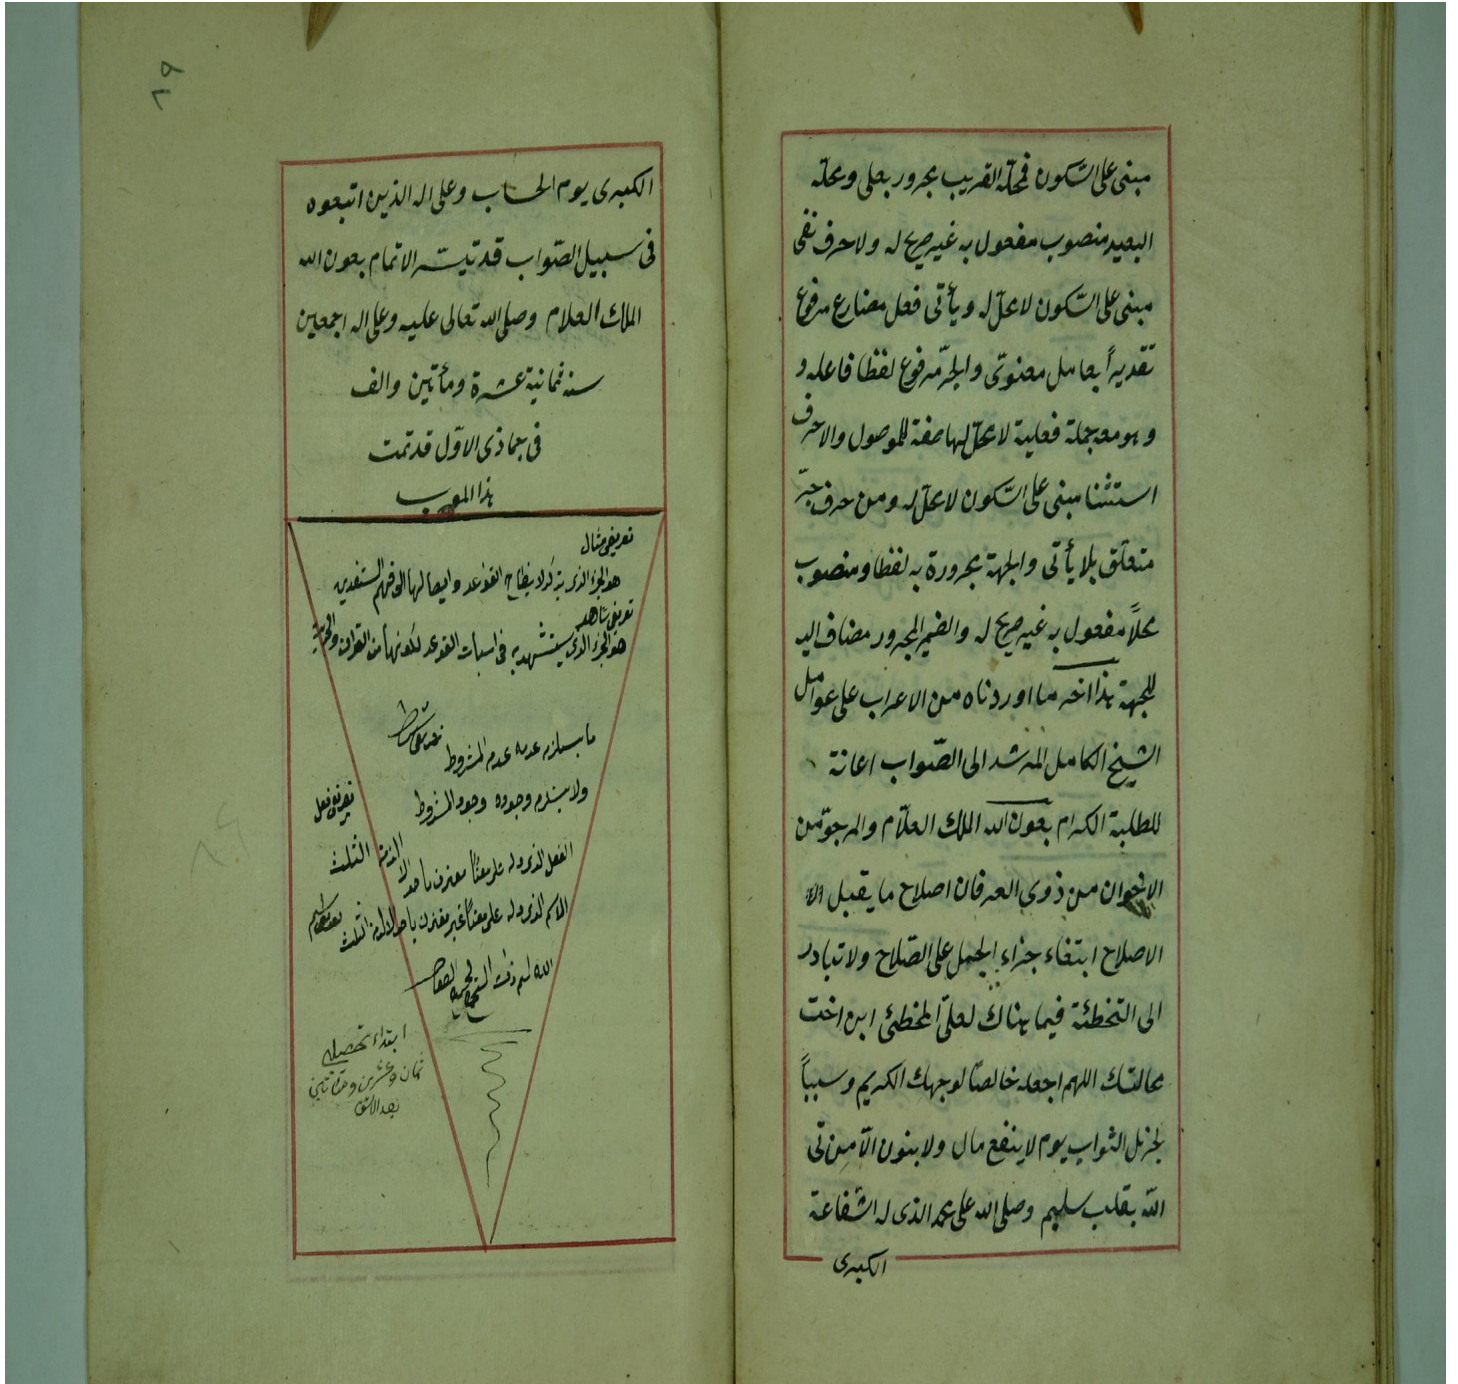 مبنى على السّكون فمحلّه القريب مجرور بعلى ومحلّه
البعيد منصوب مفعول به غير صريح له ولا حرف نفى
مبنى على السّكون لا محلّ له ويأتى فعل مضارع مرفوع
تقديراً بعامل معنوىّ والجرّ مرفوع لفظا فاعله و
وهو معه جملة فعلية لا محلّ لها صفة للموصول والا حرف
استثنا مبنى على السّكون لا محلّ له ومن حرف جرّ
متعلّق بلا يأتى والجهة مجرورة به لفظا ومنصوب
محلاً مفعول به غير صريح له والضمير المجرور مضاف اليه
للجهة هذا اخر ما اوردناه من الاعراب على عوامل
الشيخ الكامل المرشد الى الصّواب اعانة
للطلبة الكرام بعون الله الملك العلّام والمرجوّ من
الاخوان من ذوي العرفان اصلاح ما يقبل
الاصلاح ابتغاء جزاء الحمل على الصّلاح ولا تبادر
الى التخطئة فيما هناك لعلّ المخطئ ابن اخت
خالتك اللهم اجعله خالصًا لوجهك الكريم وسبباً
لجزيل الثواب يوم لا ينفع مال ولا بنون الّا من تى
الله بقلب سليم وصلى الله على محمد الذى له الشفاعة
الكبرى
٦٩
الكبرى يوم الحساب وعلى اله الذين اتبعوه
فى سبيل الصّواب قد تيسّر الاتمام بعون الله
الملك العلام وصلى الله تعالى عليه وعلى اله اجمعين
سنه ثمانية عشرة ومأتين والف
فى جماذى الاوّل قد تمت
هذا المعرب
تعريفى مثال
هو الجزء الذى يذكر لايضاح القواعد وايصالها الى فهم المستفدين
تعريفى شاهد
هو الجزء الذى يستشهد به فى اسبات القوعد لكونها من القران و
تعريفى شرط
ما يستلزم عدمه عدم المشروط
ولا يستلزم وجوده وجود المشروط
تعريفى فعل
الفعل الذى دل على معنًا مقترن باحد الازمنة الثلث
تعريفى اسم
الاسم الذى دل على معنًا غير مقترن باحد الازمنة الثلث
الله اسم ذات
ابتداء تحصيلى
ثمان وعشرين ومأتين
بعد الالف